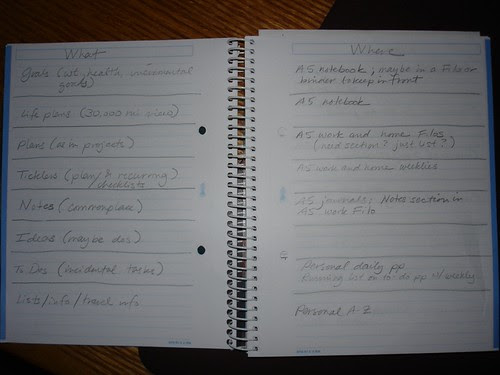 What
Goals (wt, health, incremental
goals)
Life plans (30,000 mi view)
Plans (as in projects)
Ticklers (plan/ & recurring)
/checklists
Notes (commonplace)
Ideas (maybe dos)
To Dos (incidental tasks)
Lists/info/travel info
Where
A5 notebook, maybe in a Filo or
binder to keep in front
A5 notebook
A5 work and home Filos
(need section? just list?)
A5 work and home weeklies
A5 journals; Notes section in
A5 work Filo
Personal daily pp
Running list on to do pp weekly
Personal A-Z